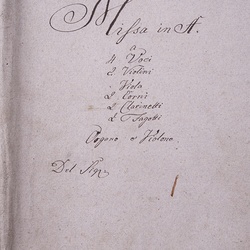 Missa in A.
a
4 Voci
2 Violini
Viola
2 Corni
2 Clarinetti
2 Fagotti
Organo e Violone
Del Sigr.